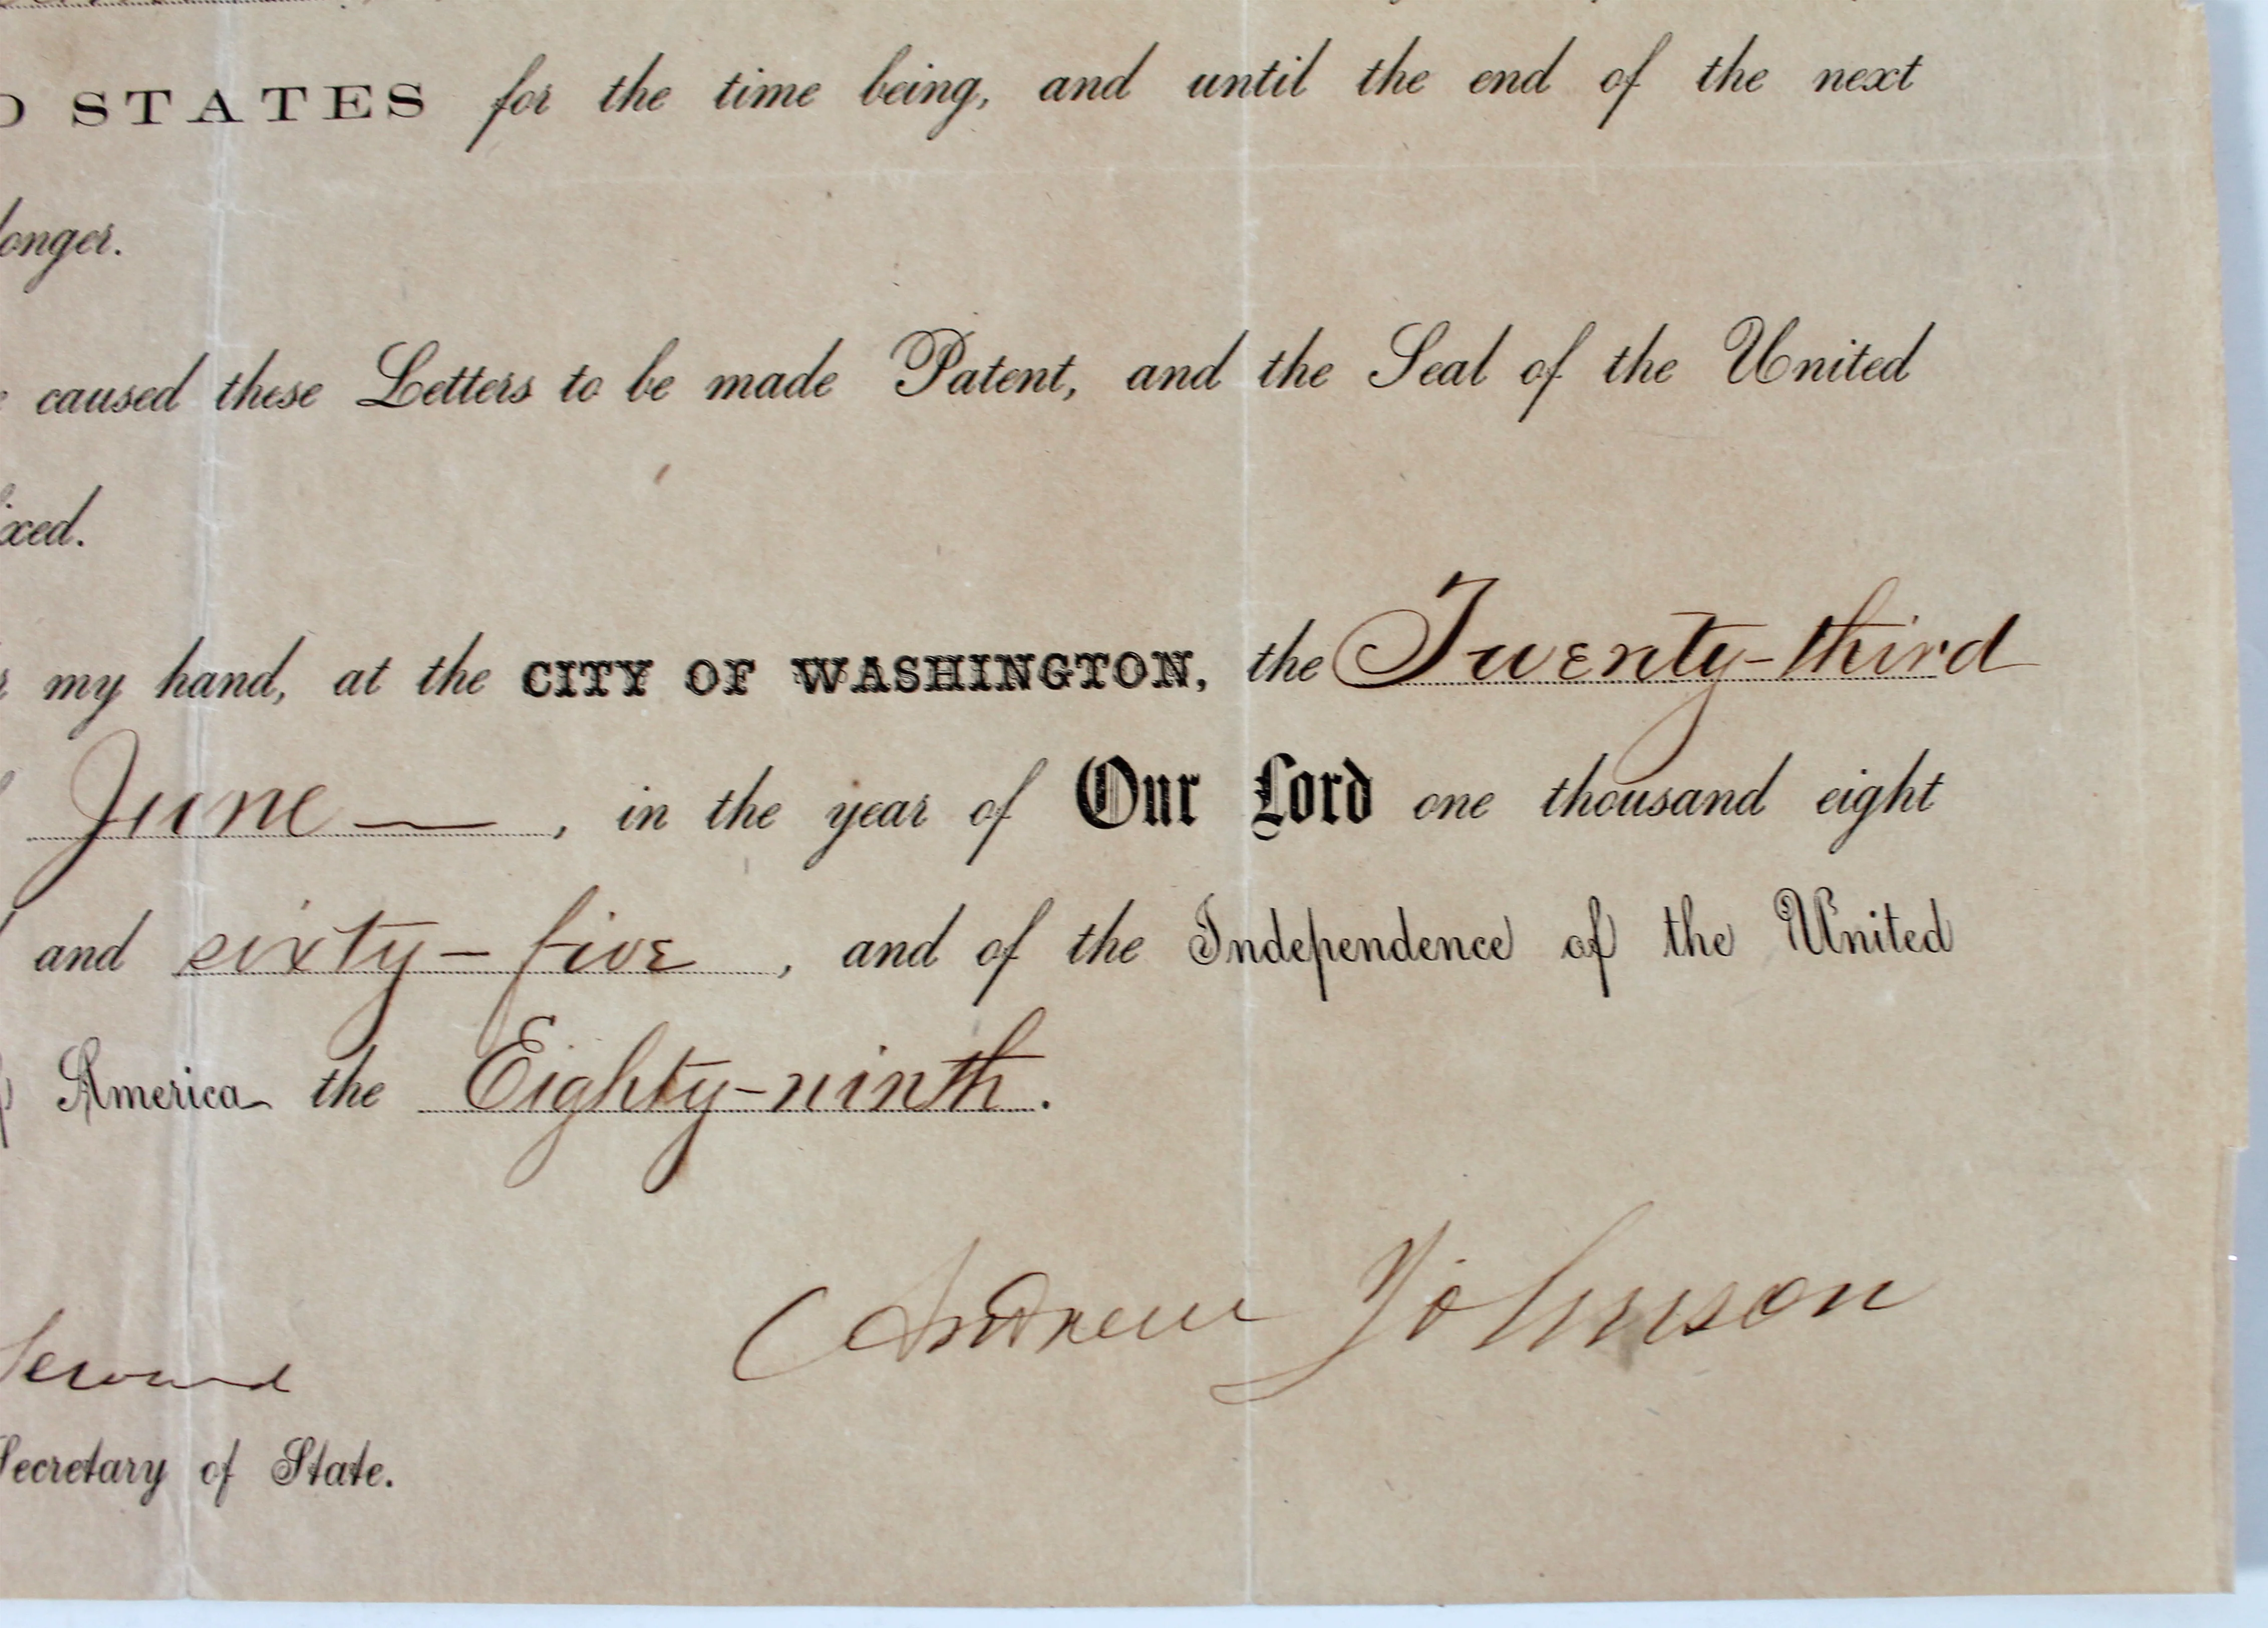 D STATES for the time being, and until the end of the next
longer.
caused these Letters to be made Patent, and the Seal of the United
ixed.
my hand, at the CITY OF WASHINGTON, the Twenty-third
June —, in the year of Our Lord one thousand eight
and sixty-five, and of the Independence of the United
America the Eighty-ninth.
Andrew Johnson
Seward
Secretary of State.